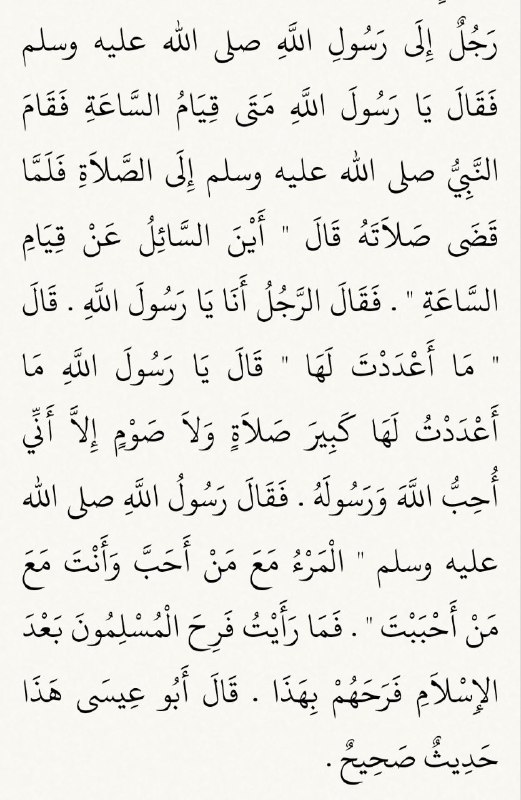 رَجُلٌ إِلَى رَسُولِ اللَّهِ صلى الله عليه وسلم
فَقَالَ يَا رَسُولَ اللَّهِ مَتَى قِيَامُ السَّاعَةِ فَقَامَ
النَّبِيُّ صلى الله عليه وسلم إِلَى الصَّلاَةِ فَلَمَّا
قَضَى صَلاَتَهُ قَالَ " أَيْنَ السَّائِلُ عَنْ قِيَامِ
السَّاعَةِ " . فَقَالَ الرَّجُلُ أَنَا يَا رَسُولَ اللَّهِ . قَالَ
" مَا أَعْدَدْتَ لَهَا " قَالَ يَا رَسُولَ اللَّهِ مَا
أَعْدَدْتُ لَهَا كَبِيرَ صَلاَةٍ وَلاَ صَوْمٍ إِلاَّ أَنِّي
أُحِبُّ اللَّهَ وَرَسُولَهُ . فَقَالَ رَسُولُ اللَّهِ صلى الله
عليه وسلم " الْمَرْءُ مَعَ مَنْ أَحَبَّ وَأَنْتَ مَعَ
مَنْ أَحْبَبْتَ " . فَمَا رَأَيْتُ فَرِحَ الْمُسْلِمُونَ بَعْدَ
الإِسْلاَمِ فَرَحَهُمْ بِهَذَا . قَالَ أَبُو عِيسَى هَذَا
حَدِيثٌ صَحِيحٌ .